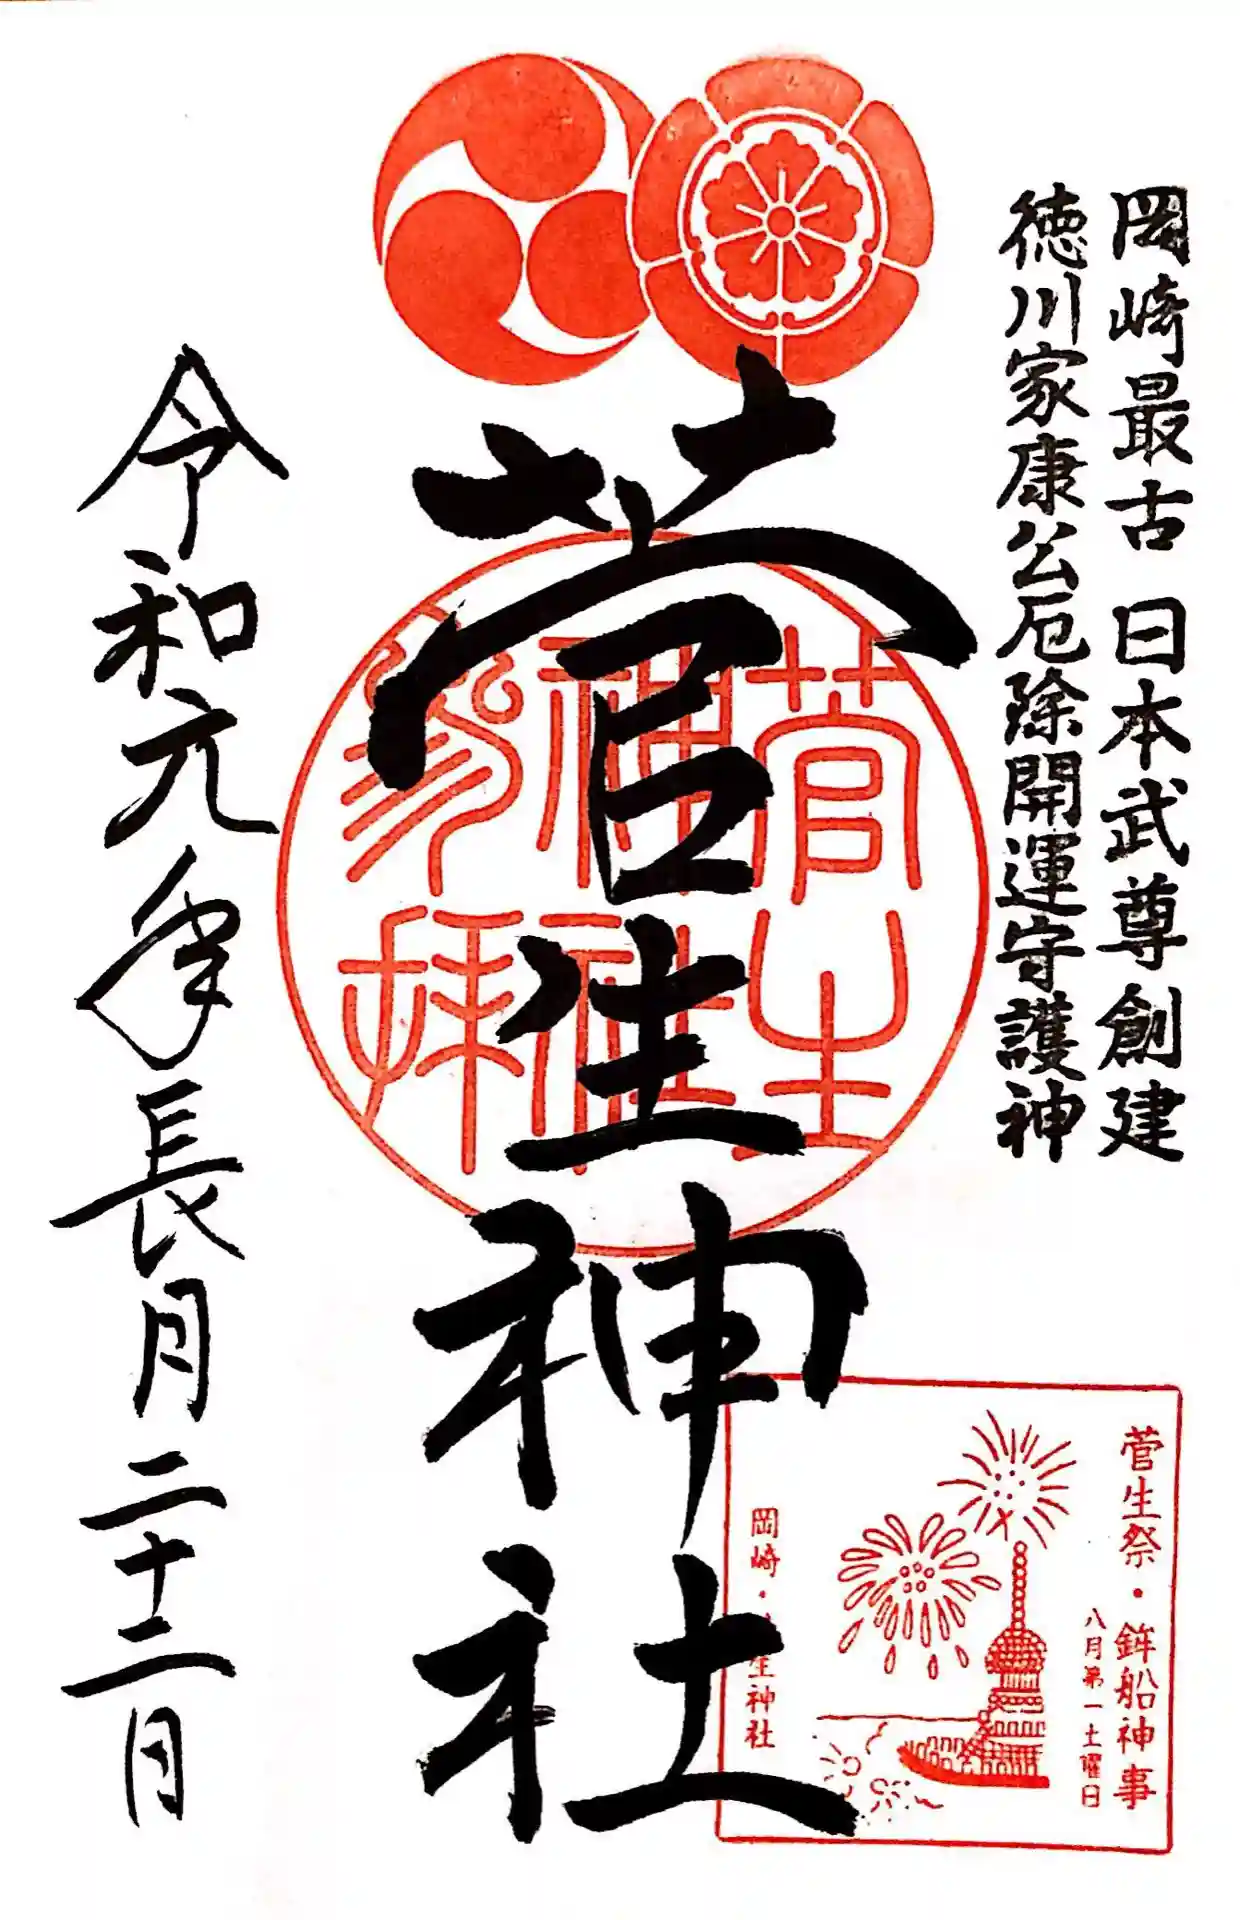 岡崎最古 日本武尊創建
徳川家康公厄除開運守護神
菅生神社
菅生
神社
參拝
菅生祭・鉾船神事
八月第一土曜日
岡崎・菅生神社
令和元年長月二十二日